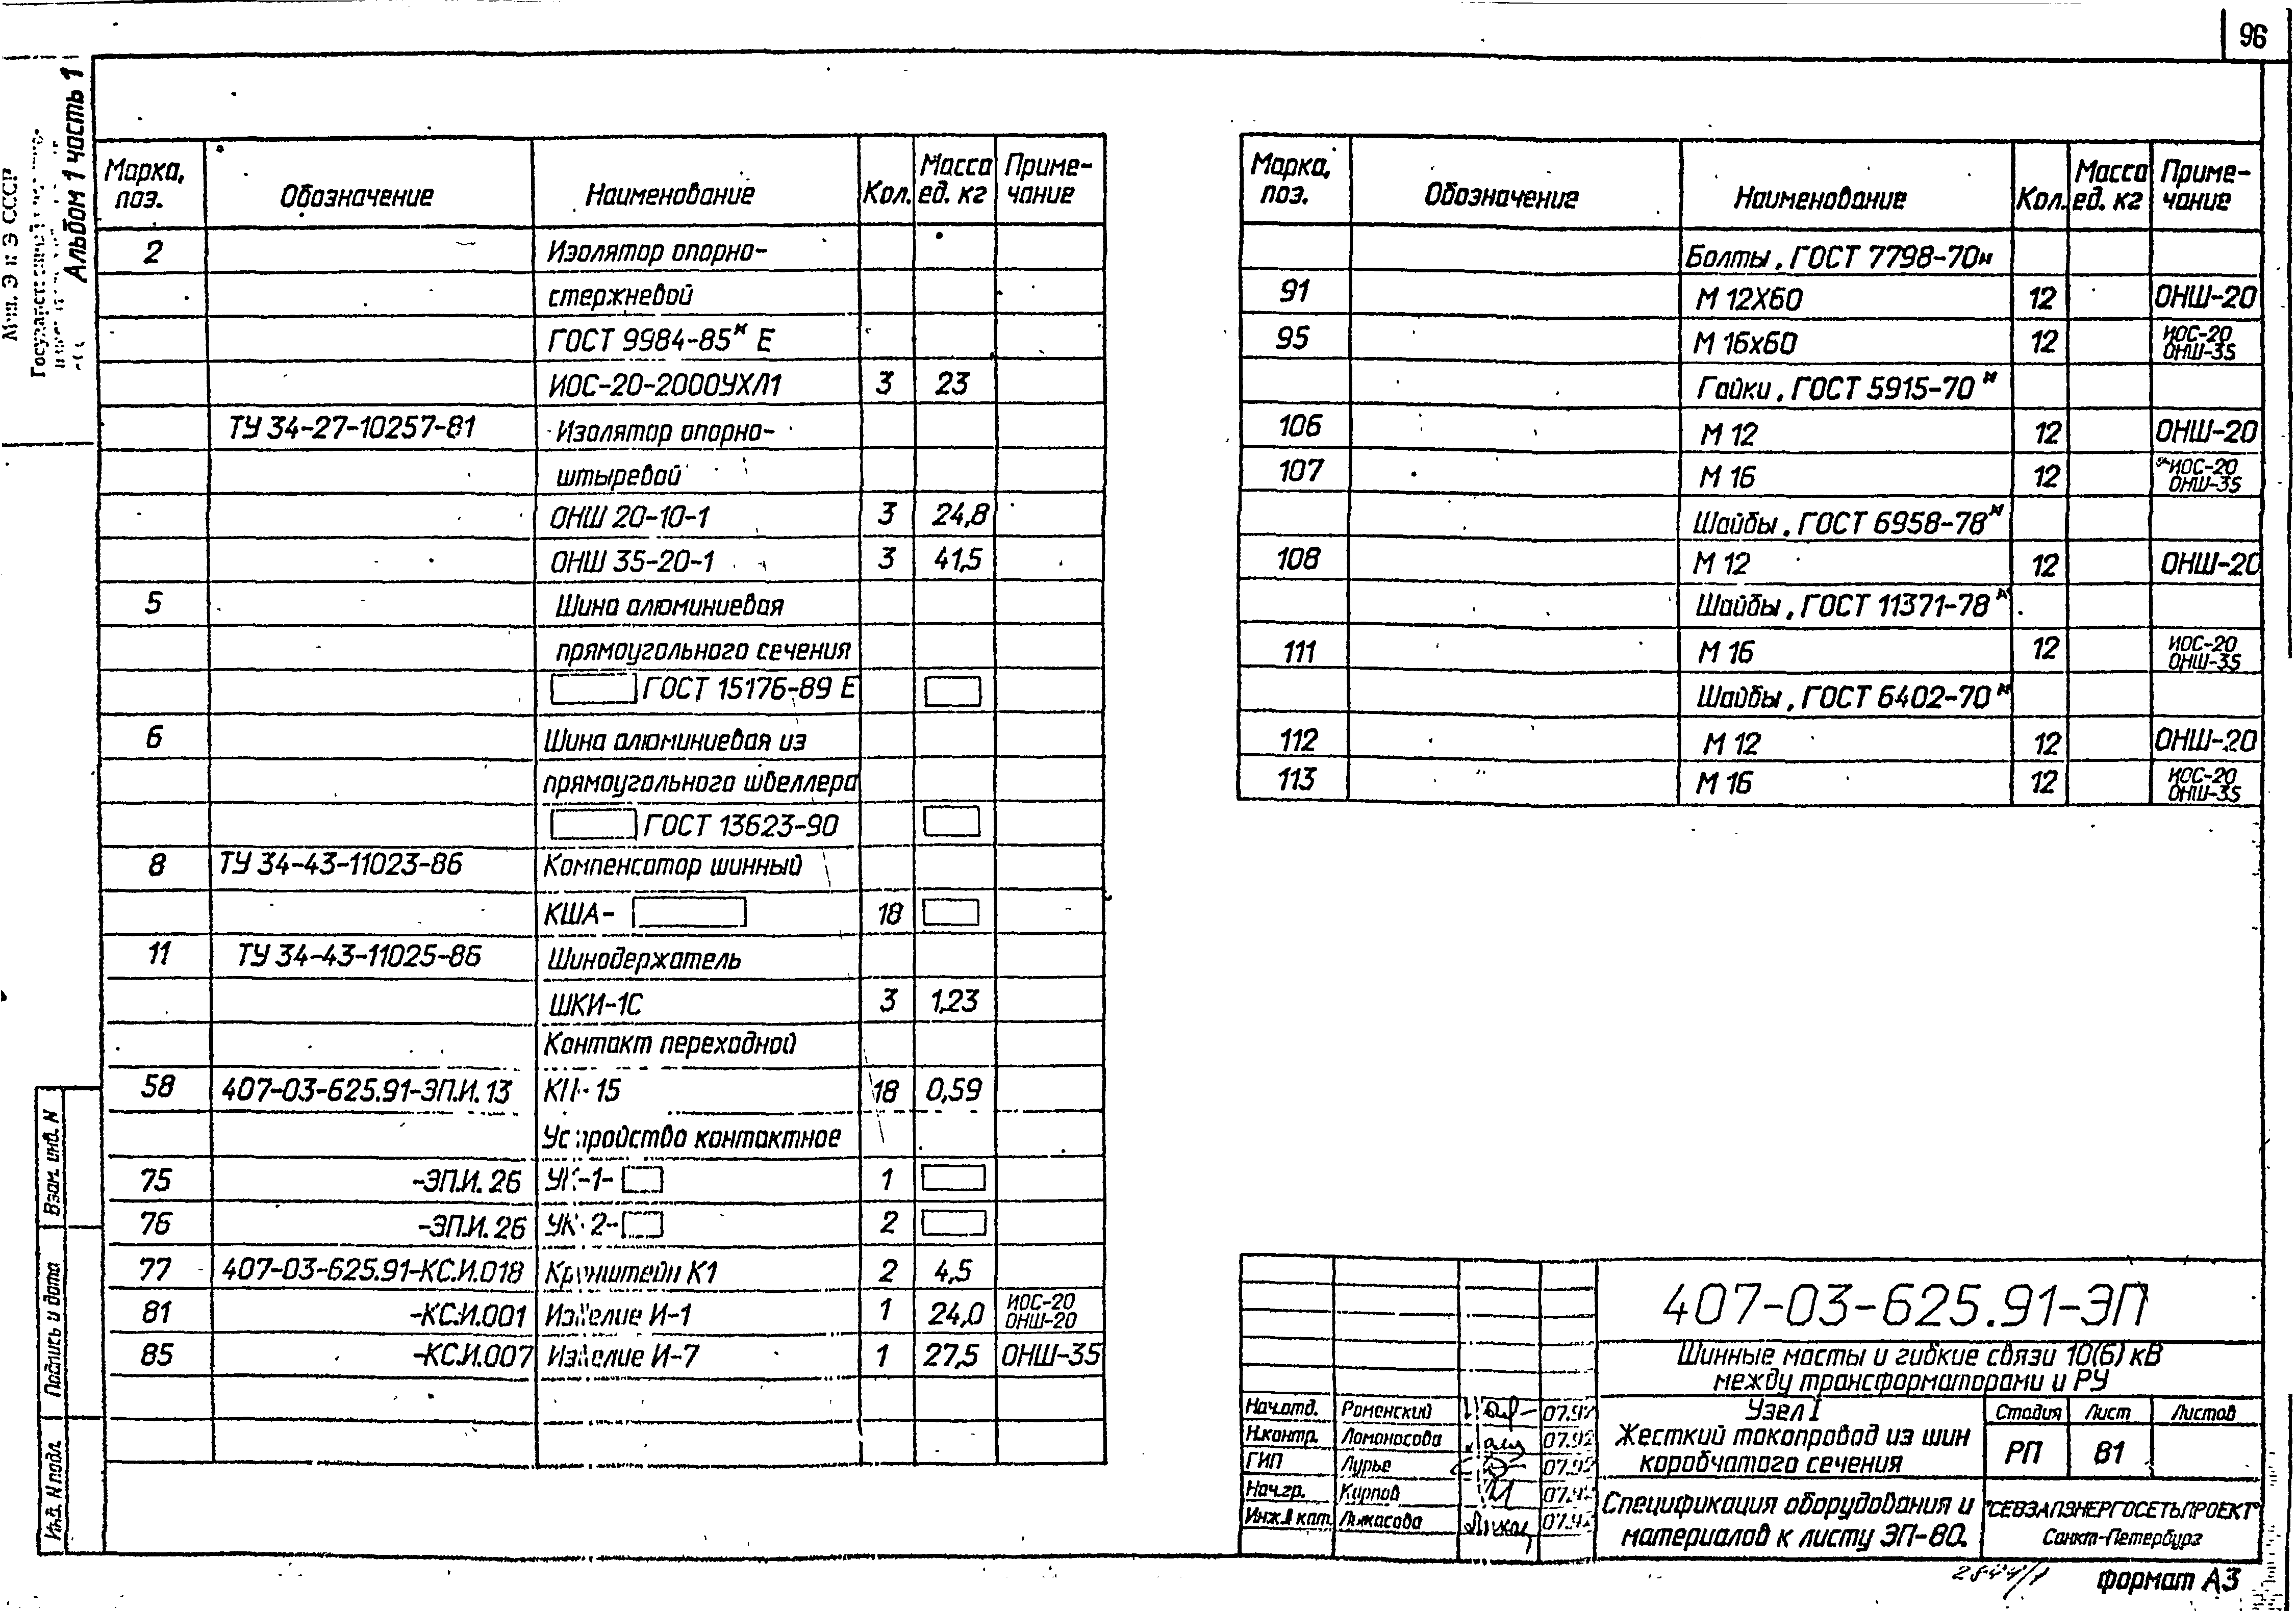 96
Альбом 1 часть 1
Марка, поз. Обозначение Наименование Кол. Масса ед. кг Приме-чание
2 Изолятор опорно-
стержневой
ГОСТ 9984-85* Е
ИОС-20-2000УХЛ1 3 23
ТУ 34-27-10257-81 Изолятор опорно-
штыревой
ОНШ 20-10-1 3 24,8
ОНШ 35-20-1 3 41,5
5 Шина алюминиевая
прямоугольного сечения
ГОСТ 15176-89 Е
6 Шина алюминиевая из
прямоугольного швеллера
ГОСТ 13623-90
8 ТУ 34-43-11023-86 Компенсатор шинный
КША- 18
11 ТУ 34-43-11025-86 Шинодержатель
ШКИ-1С 3 1,23
Контакт переходной
58 407-03-625.91-ЭП.И.13 КП-15 18 0,59
Устройство контактное
75 -ЭП.И.26 УК-1- 1
76 -ЭП.И.26 УК-2- 2
77 407-03-625.91-КС.И.018 Кронштейн К1 2 4,5
81 -КС.И.001 Изделие И-1 1 24,0 ИОС-20 ОНШ-20
85 -КС.И.007 Изделие И-7 1 27,5 ОНШ-35
Марка, поз. Обозначение Наименование Кол. Масса ед. кг Приме-чание
Болты, ГОСТ 7798-70*
91 М 12Х60 12 ОНШ-20
95 М 16х60 12 ИОС-20 ОНШ-35
Гайки, ГОСТ 5915-70*
106 М 12 12 ОНШ-20
107 М 16 12 ИОС-20 ОНШ-35
Шайбы, ГОСТ 6958-78*
108 М 12 12 ОНШ-20
Шайбы, ГОСТ 11371-78*
111 М 16 12 ИОС-20 ОНШ-35
Шайбы, ГОСТ 6402-70*
112 М 12 12 ОНШ-20
113 М 16 12 ИОС-20 ОНШ-35
Взам. инв. N
Подпись и дата
Инв. N подл.
407-03-625.91-ЭП
Шинные мосты и гибкие связи 10(6) кВ
между трансформаторами и РУ
Нач.отд. Роменский 07.92
Н.контр. Ломоносова 07.92
ГИП Лурье 07.92
Нач.гр. Карпов 07.92
Инж.II кат. 07.92
Узел I
Жесткий токопровод из шин
коробчатого сечения
Стадия Лист Листов
РП 81
Спецификация оборудования и
материалов к листу ЭП-80.
"СЕВЗАПЭНЕРГОСЕТЬПРОЕКТ"
Санкт-Петербург
формат А3